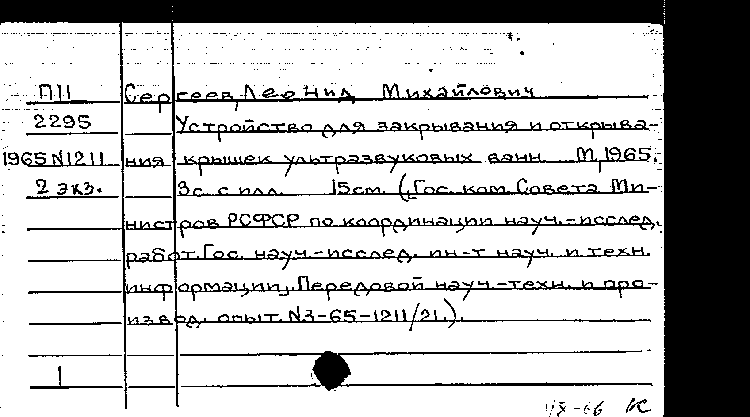 П11 Сергеев, Леонид Михайлович
2295 Устройство для закрывания и открыва-
1965 N1211 ния крышек ультразвуковых ванн. М, 1965.
2 экз. 3с. с илл. 15см. (Гос. ком. Совета Ми-
нистров РСФСР по координации науч.-исслед.
работ. Гос. науч.-исслед. ин-т науч. и техн.
информации. Передовой науч.-техн. и про-
извод. опыт. N3-65-1211/21.).
1